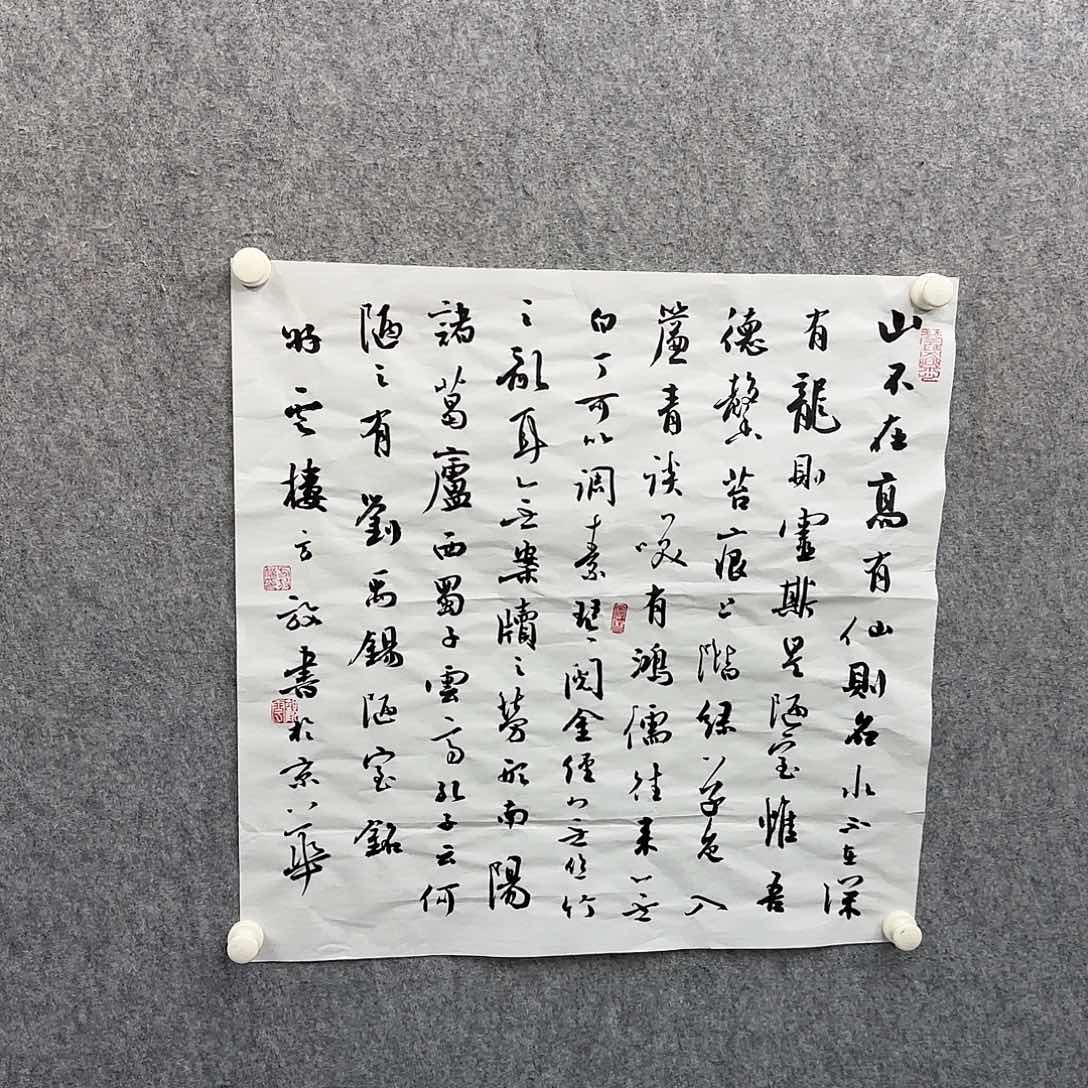 山不在高有仙則名水不在深
有龍則靈斯是陋室惟吾
德馨苔痕上階綠草色入
簾青談笑有鴻儒往來無
白丁可以調素琴閱金經無絲竹
之亂耳無案牘之勞形南陽
諸葛廬西蜀子雲亭孔子云何
陋之有劉禹錫陋室銘
雲書於京華